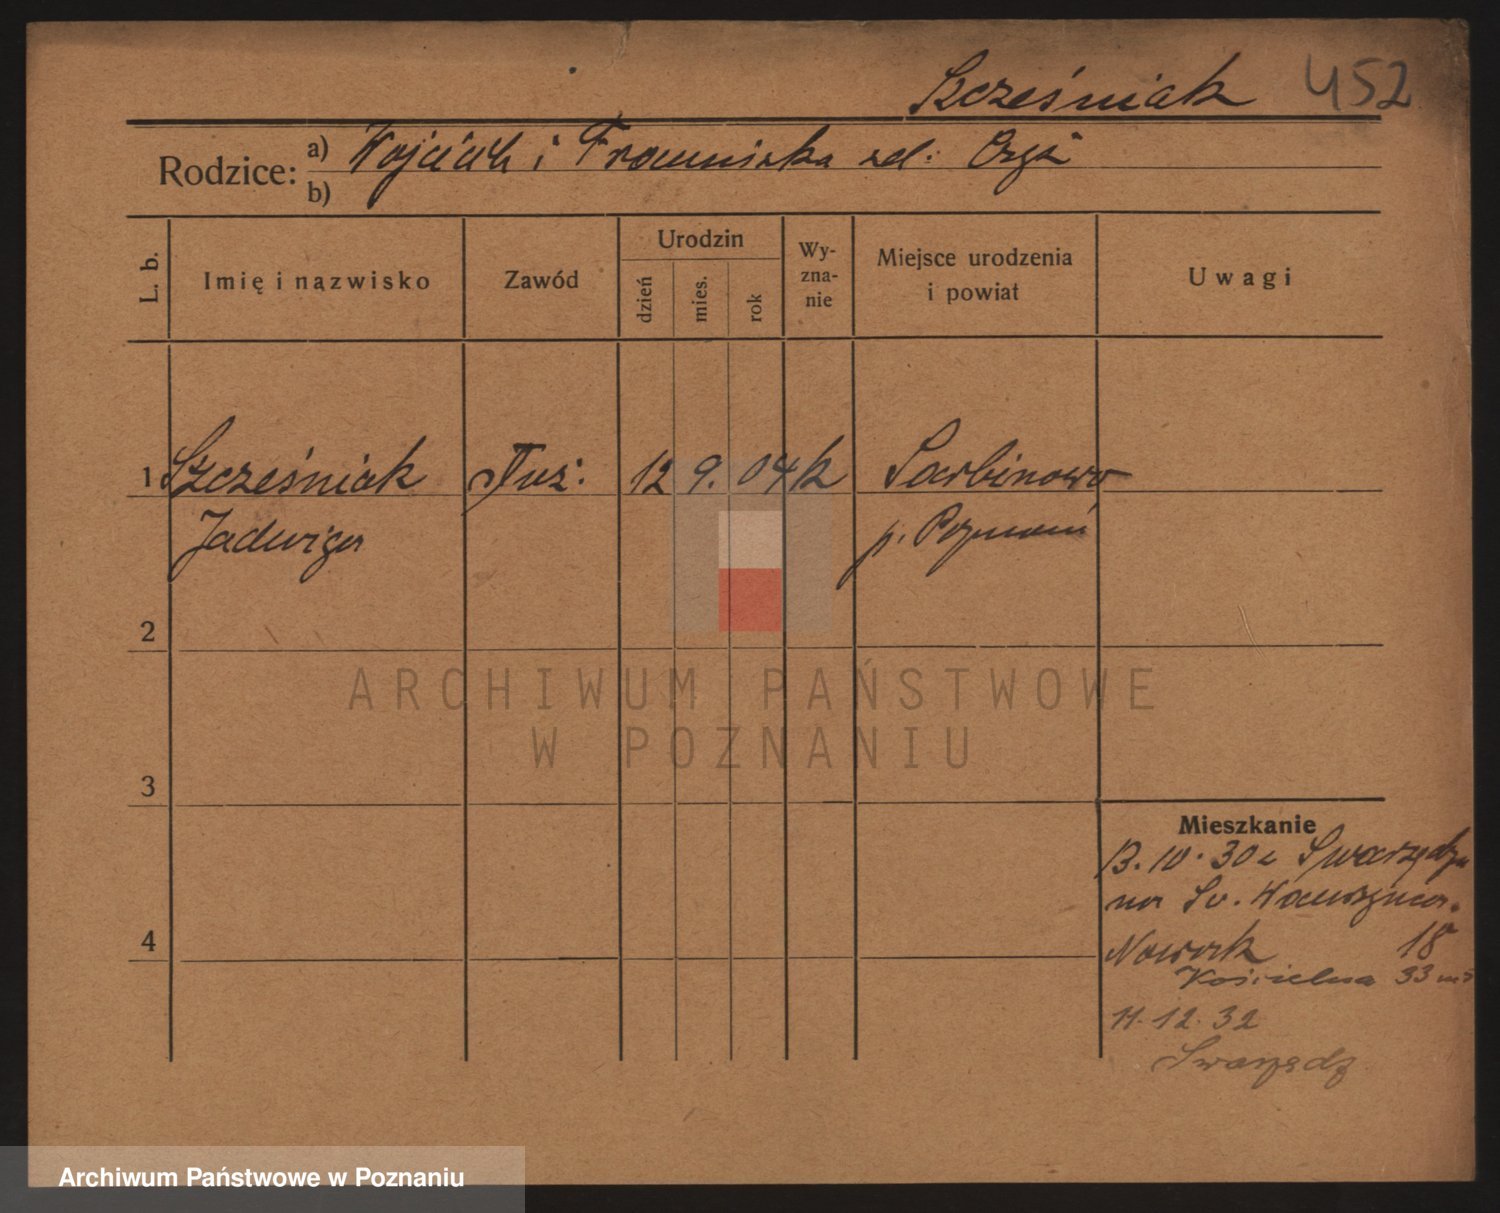 Szcześniak 452
Rodzice: a) Wojciech i Franciszka zd:
b)
L. b.
Imię i nazwisko
Zawód
Urodzin
dzień
mies.
rok
Wy-
zna-
nie
Miejsce urodzenia
i powiat
Uwagi
1 Szcześniak służ: 12 9. 04 k Sarbinowo
Jadwiga p. Poznań
2
3
4
Mieszkanie
13.10.30 z Swarzędza
na Św. Wawrzyńca
Nowak 18
Kościelna 33 m
11.12.32
Swarzędz
ARCHIWUM PAŃSTWOWE
W POZNANIU
Archiwum Państwowe w Poznaniu